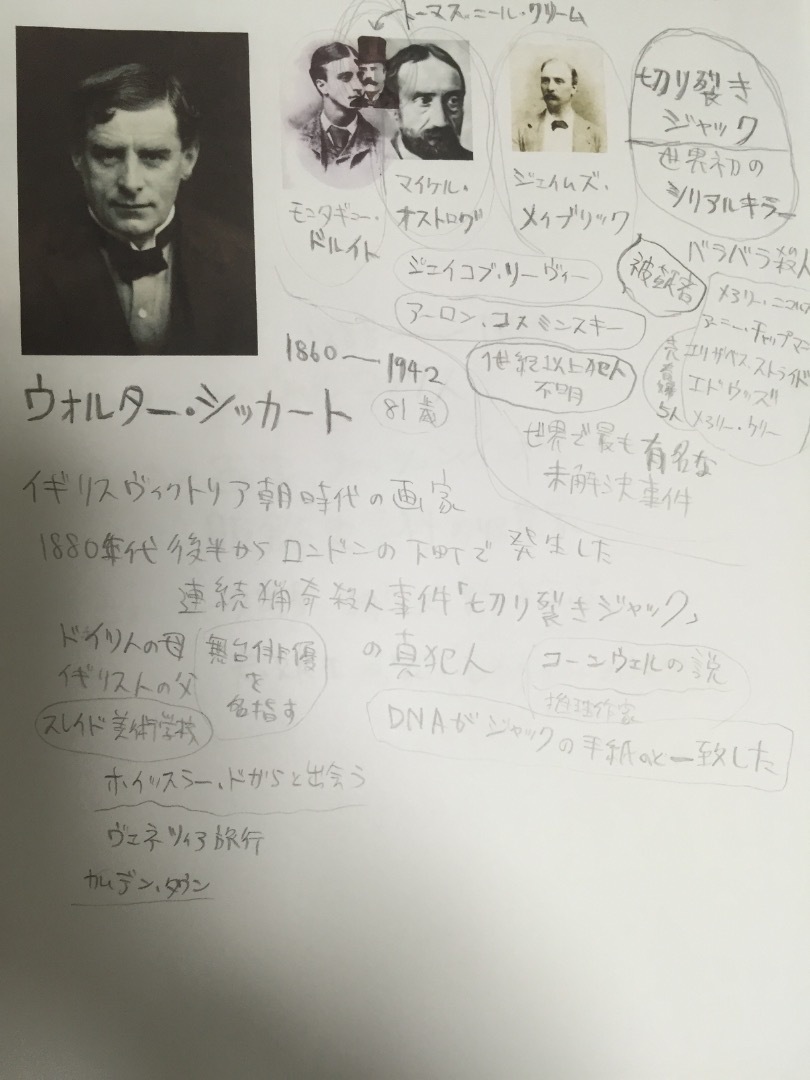 トーマス・ニール・クリーム
切り裂き
ジャック
世界初の
シリアルキラー
モンタギュー・
ドルイト
マイケル・
オストログ
ジェイムズ・
メイブリック
ジェイコブ・リーヴィー
アーロン・コスミンスキー
被害者
バラバラ殺人
メアリー・ニコルズ
アニー・チャップマン
エリザベス・ストライド
エドウッズ
メアリー・ケリー
売春婦
5人
1世紀以上犯人
不明
世界で最も有名な
未解決事件
1860ー1942
81歳
ウォルター・シッカート
イギリスヴィクトリア朝時代の画家
1880年代後半からロンドンの下町で発生した
連続猟奇殺人事件「切り裂きジャック」
の真犯人
コーンウェルの説
推理作家
DNAがジャックの手紙のと一致した
ドイツ人の母
イギリス人の父
舞台俳優
を
名指す
スレイド美術学校
ホイッスラー、ドガらと出会う
ヴェネツィア旅行
カムデン・タウン